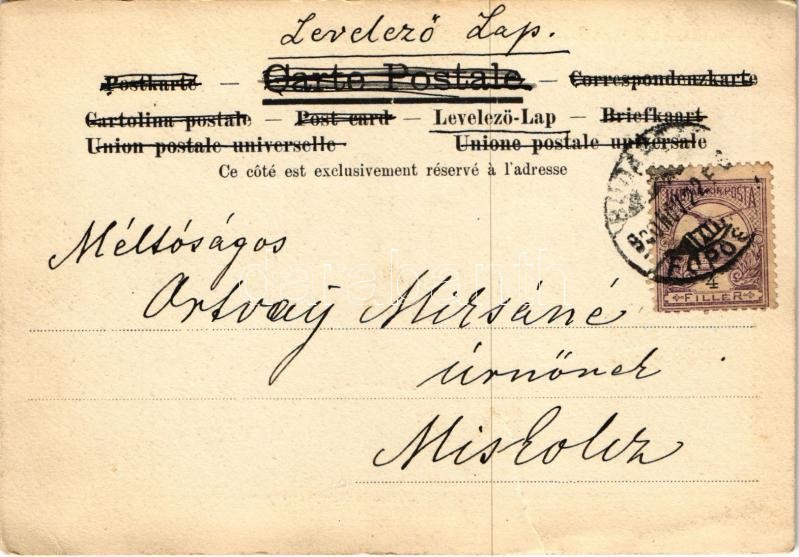 Levelező Lap.
Postkarte — Carte Postale — Correspondenzkarte
Cartolina postale — Post card — Levelezö-Lap — Briefkaart
Union postale universelle - Unione postale universale
Ce côté est exclusivement réservé à l'adresse
MAGYAR KIR. POSTA
4
FILLÉR
Méltóságos
Ortvay
úrnőnek
Miskolcz
darabanth